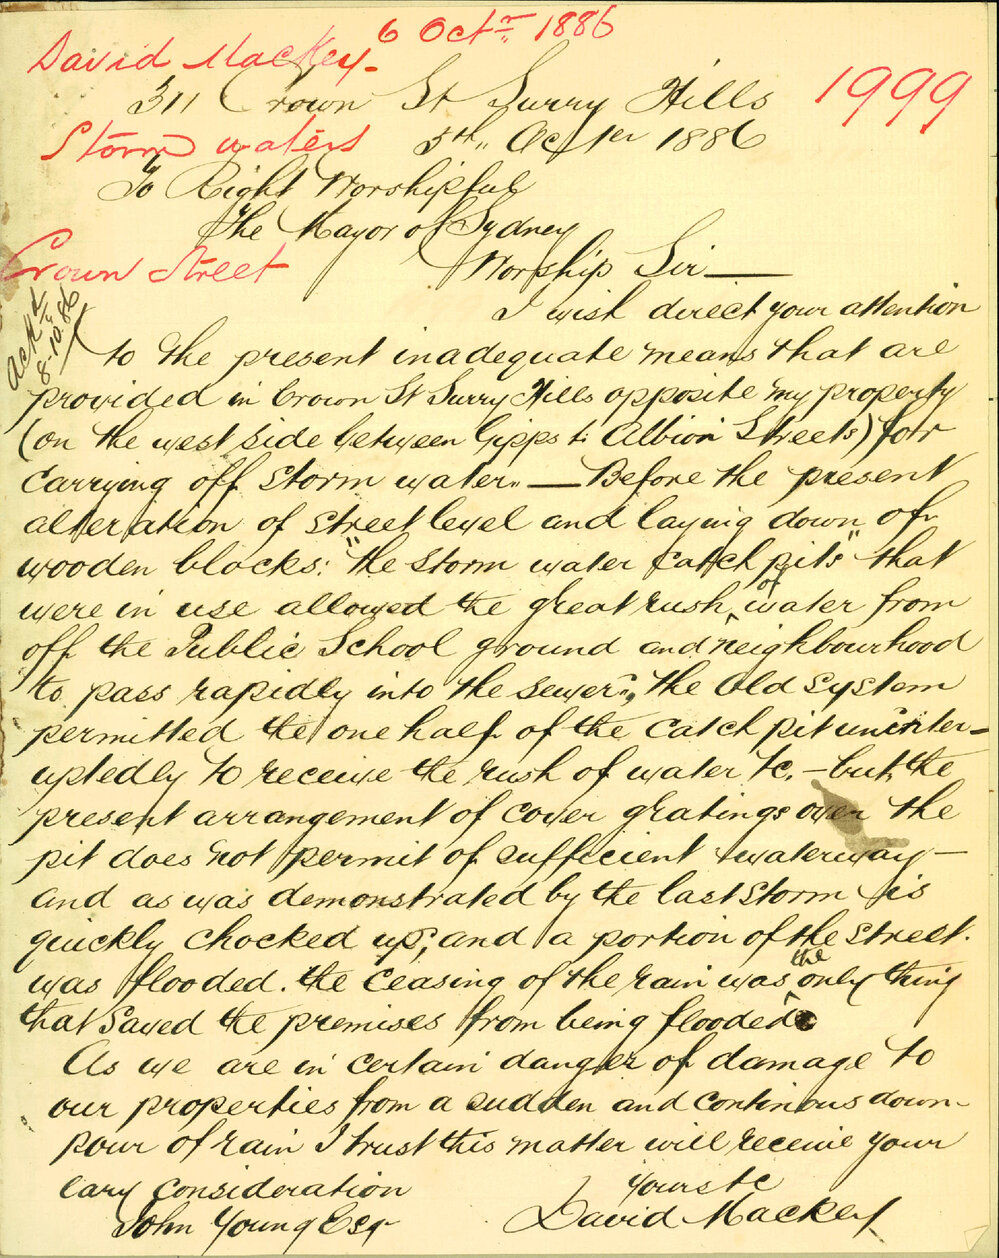 6 Octr 1886
David Mackey.
1999
311 Crown St Surry Hills
Storm waters
5th, Octer 1886
To Right Worshipful
The Mayor of Sydney
Crown Street
Worship Sir —
Ackd
8-10.86
I wish direct your attention
to the present inadequate means that are
provided in Crown St Surry Hills opposite my property
(on the west side between Gipps & Albion Streets) for
carrying off storm water. — Before the present
alteration of street level and laying down of
wooden blocks: "the storm water catch pits" that
were in use allowed the great rush of water from
off the Public School ground and neighbourhood
to pass rapidly into the sewer, the old system
permitted the one half of the catch pit uninter-
uptedly to receive the rush of water &c. - but, the
present arrangement of cover gratings over the
pit does not permit of sufficient waterway —
and as was demonstrated by the last storm is
quickly chocked up, and a portion of the street.
was flooded. the ceasing of the rain was the only thing
that saved the premises from being flooded
As we are in certain danger of damage to
our properties from a sudden and continous down-
pour of rain I trust this matter will receive your
eary consideration
Yours &c
John Young Esq
David Mackey